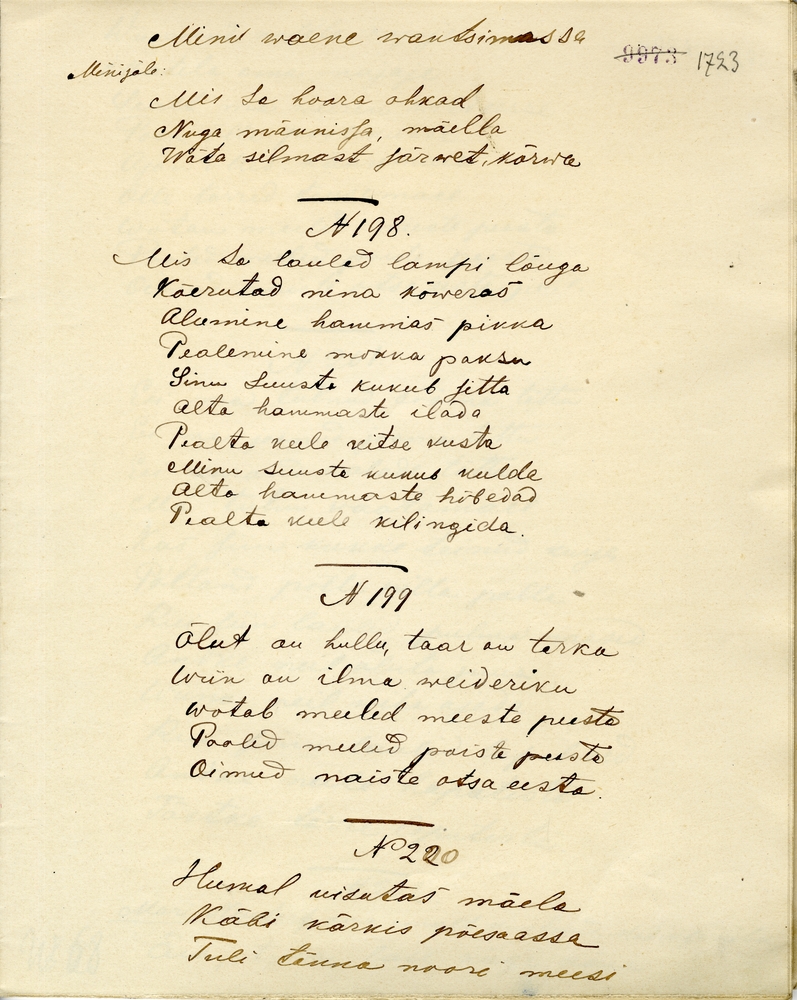 Minu waene wantsimassa
9973 1723
Minijale:
Mis sa hoora ohkad
Nuga männissa, mäella
Wäta silmast järwet, kõrwa
N 198.
Mis sa lauled lampi lõuga
Käerutad nina kõweras
Alumine hammas pikka
Pealemine mokka paksu
Sinu suusta kukub sitta
Alta hammasta ilada
Pealta keele kitse kusta
Minu suusta kukub kulda
Alta hammaste hõbedad
Pealta keele kilingida.
N 199
Õlut on hullu, taar on tarka
Wiin on ilma weideriku
Wõtab meeled meeste peasta
Pooled meeled poiste peasta
Oimud naiste otsa eesta.
N 200
Humal uisutas mäela
Käbi kärkis põesaassa
Tuli tänna noori meesi